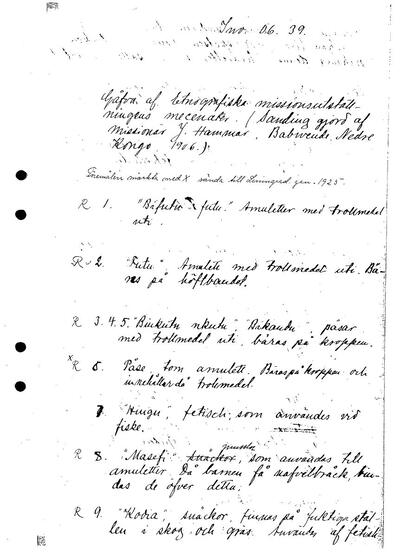 Inv. 06. 39.
Gåfva af Etnografiska missionsutställ-
ningens mecenater. (Samling gjord af
missionär J. Hammar, Babwende, Nedre
Kongo 1906.)
Föremålen märkta med X sända till Leningrad jan. 1925.
R 1. "Bafutu futu." Amuletter med trollmedel
uti.
R 2. "Futu", Amulett med trollmedel uti. Bä-
res på höftbandet.
R 3. 4. 5. nkutu", påsar
med trollmedel uti, bäras på kroppen.
x R 6. Påse, som amulett. Bäras på kroppen och
innehållande trollmedel.
7. "Hingu", fetisch, som användes vid
fiske.
musslor
R 8. "Masefi" snäckor, som användas till
amuletter. Då barnen få nafvelbråck, bin-
das de öfver detta.
R 9. "Kodia", snäckor, finnas på fuktiga stäl-
len i skog och gräs. Användes af fetisch-